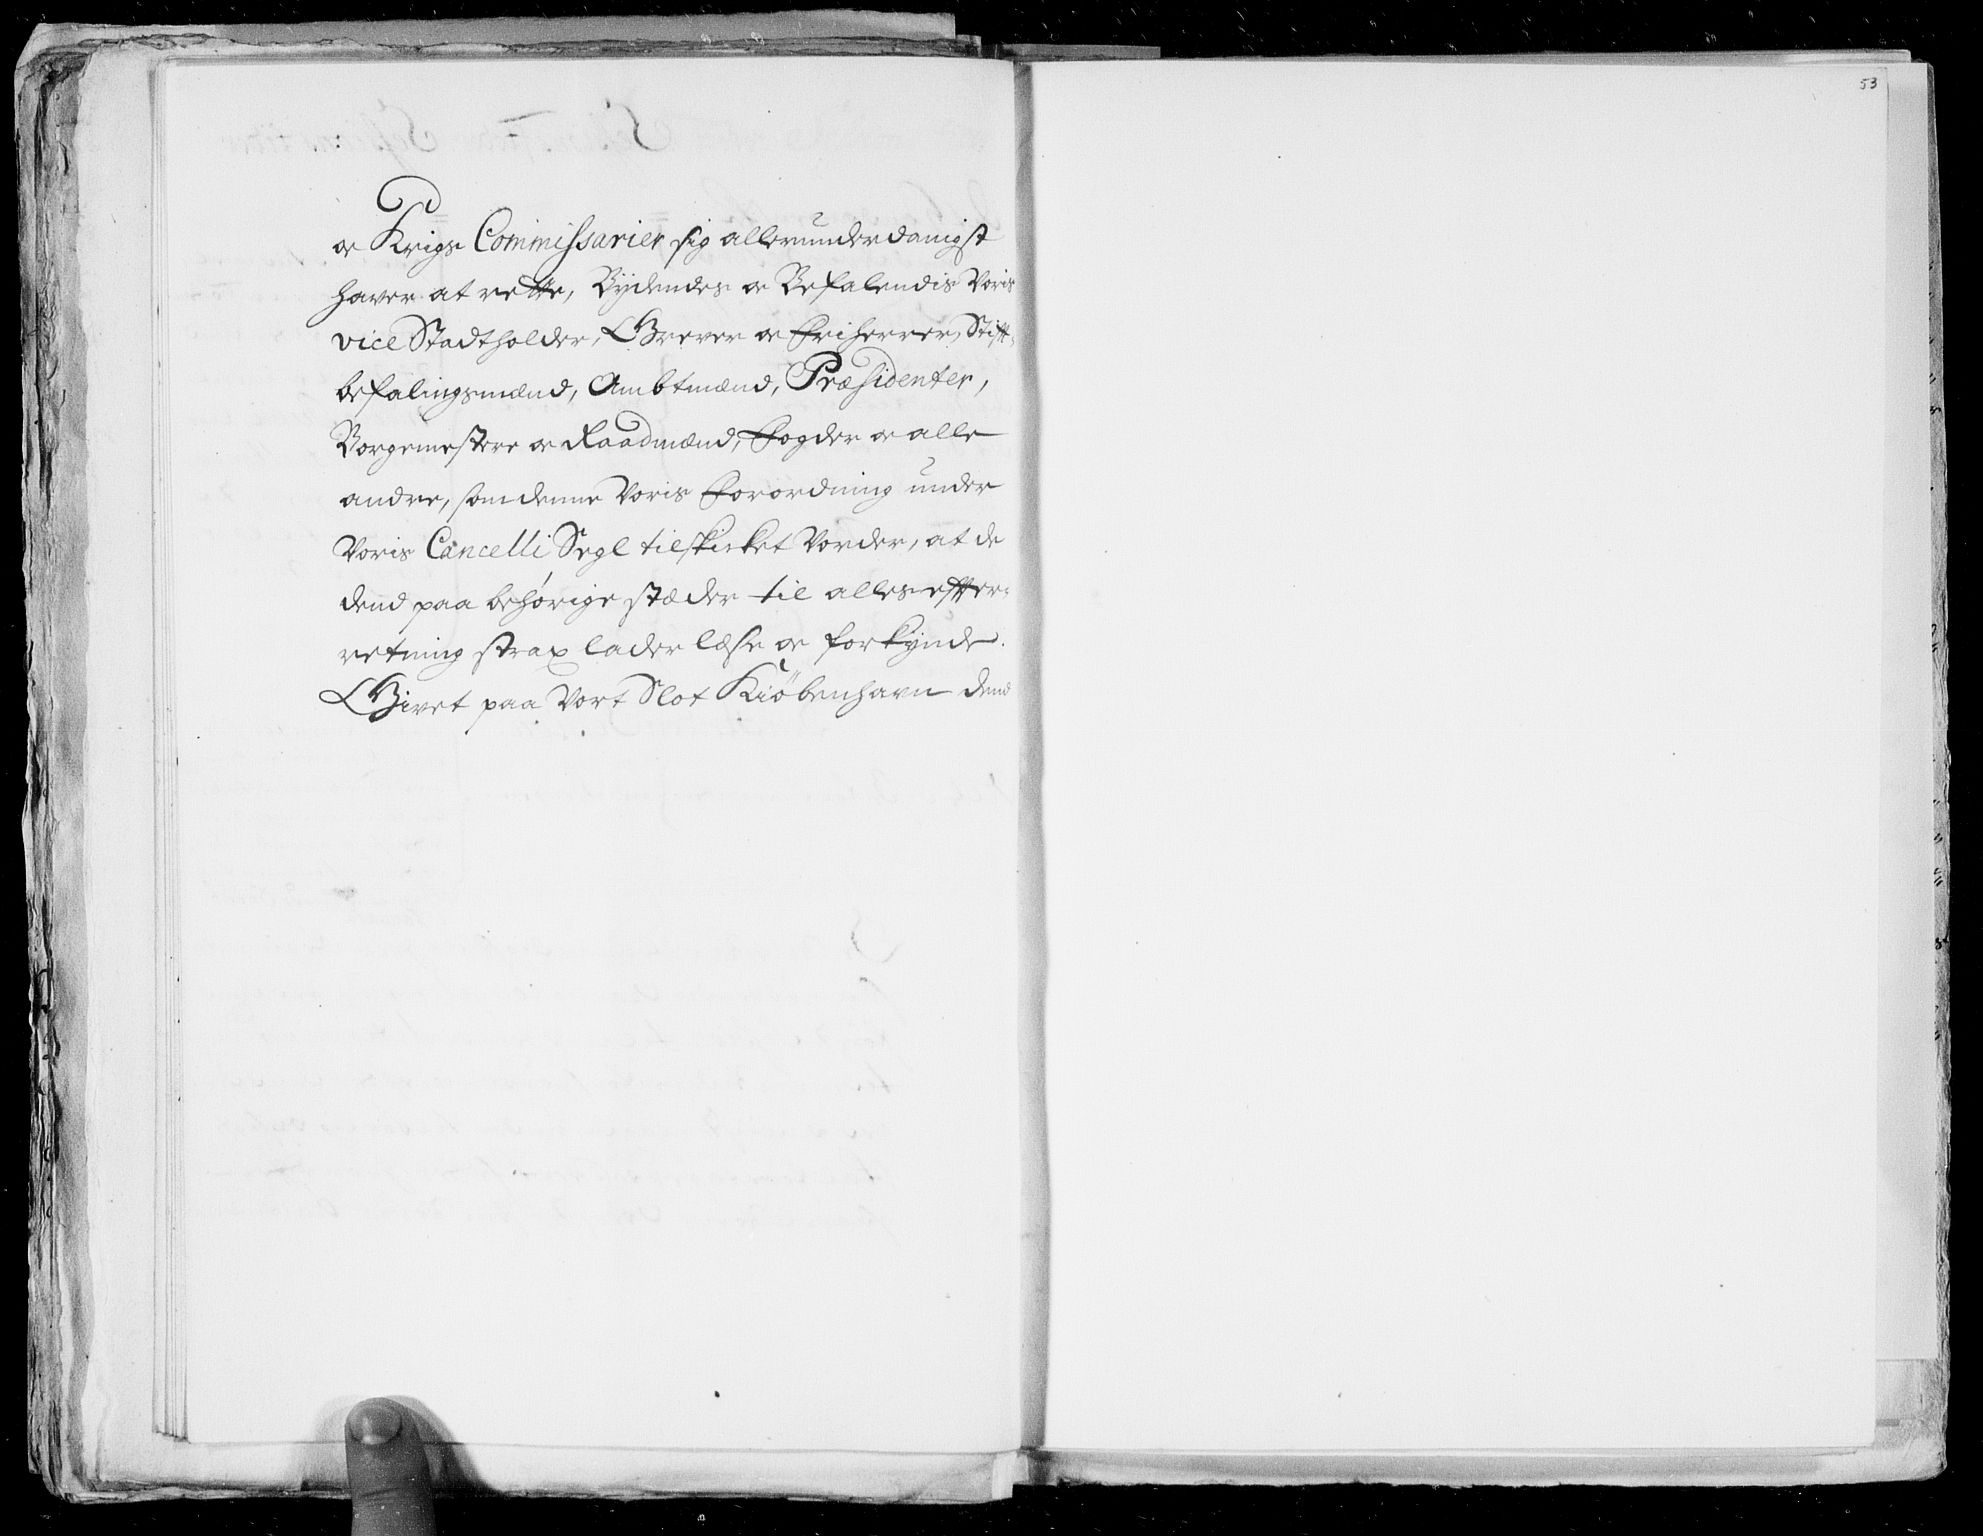 oc Krigs Commissarier sig allerunderdanigst
haver at rette, Bÿdendes oc Befalendis Voris
vice Stadtholder, Grever oc Friherrer, Stifft-
befalingsmænd, Ambtmænd, Præsidenter,
Borgemestere oc Raadmænd, Fogder oc alle
andre, som denne Voris Forordning under
Voris Cancelli Segl tilskicket Vorder, at de
dend paa behørige stæder til alles effter-
retning strax lader læse oc forkynde.
Givet paa Vort Slot Kiöbenhavn dend
53